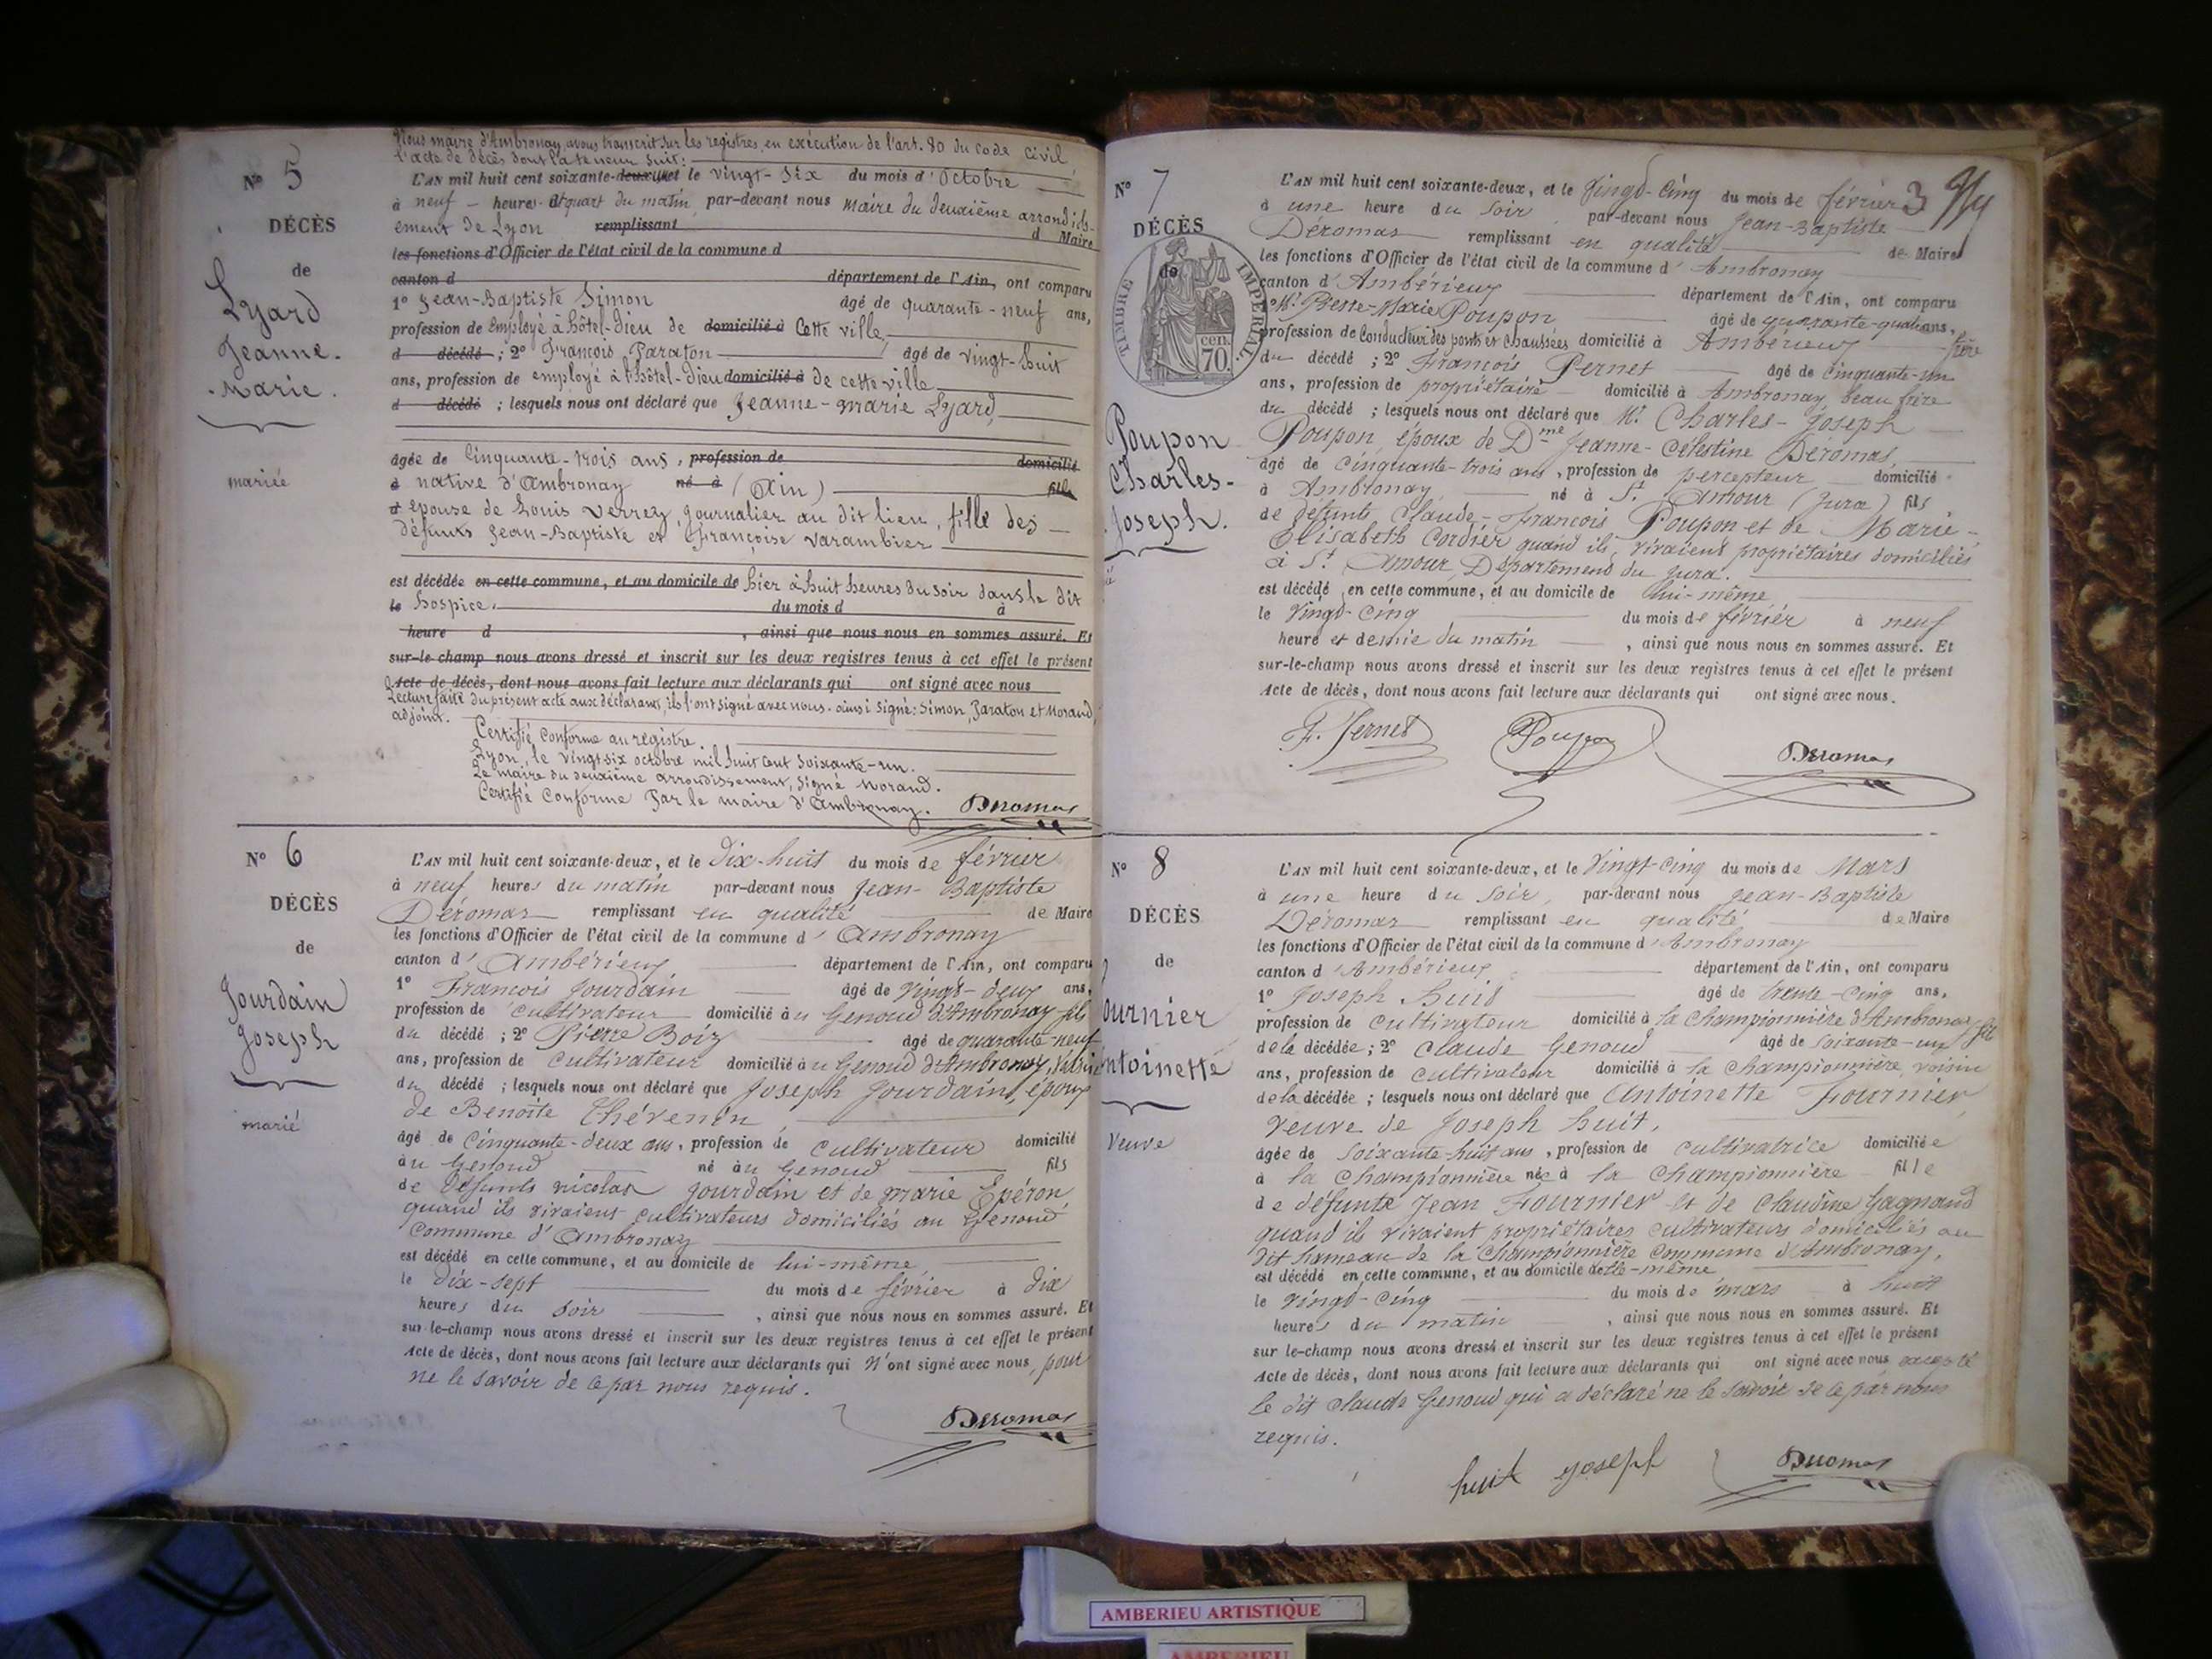 Nous maire d'Ambronay, avons transcrit sur les registres, en exécution de l'art. 80 du code civil
l'acte de décès dont la teneur suit :
N° 5
DÉCÈS
de
Lyard
Jeanne-
-Marie.
mariée
L'AN mil huit cent soixante-deux et le vingt-six du mois d'Octobre
à neuf heures et quart du matin, par-devant nous maire du deuxième arrondiss-
ement de Lyon remplissant d Maire
les fonctions d'Officier de l'état civil de la commune d
canton d département de l'Ain, ont comparu
1° Jean-Baptiste Simon âgé de quarante-neuf ans,
profession de Employé à hôtel-Dieu de domicilié à cette ville
d décédé ; 2° François Paraton âgé de vingt-huit
ans, profession de employé à l'hôtel-Dieu domicilié à de cette ville
d décédé ; lesquels nous ont déclaré que Jeanne-marie Lyard,
âgée de Cinquante-trois ans, profession de domicilié
à native d'Ambronay né à (Ain) fils
d épouse de Louis Verrey, journalier au dit lieu, fille des
défunts Jean-Baptiste et Françoise Varambier
est décédée en cette commune, et au domicile de hier à huit heures du soir dans le dit
le hospice. du mois d à
heure d , ainsi que nous nous en sommes assuré. Et
sur-le-champ nous avons dressé et inscrit sur les deux registres tenus à cet effet le présent
Acte de décès, dont nous avons fait lecture aux déclarants qui ont signé avec nous
Lecture faite du présent acte aux déclarants, ils l'ont signé avec nous. ainsi signé : Simon, Paraton et Morand,
adjoint.
Certifié Conforme au registre
Lyon, le vingt six octobre mil huit cent soixante-un.
Le maire du deuxième arrondissement, signé Morand.
Certifié Conforme Par le maire d'Ambronay. Deromas
N° 6
DÉCÈS
de
Jourdain
Joseph
marié
L'AN mil huit cent soixante-deux, et le Dix-huit du mois de février
à neuf heures du matin par-devant nous Jean-Baptiste
Déromas remplissant en qualité de Maire
les fonctions d'Officier de l'état civil de la commune d'Ambronay
canton d'Ambérieux département de l'Ain, ont comparu
1° François Jourdain âgé de vingt-deux ans,
profession de cultivateur domicilié au Genoud d'Ambronay fils
du décédé ; 2° Pierre Boiz âgé de quarante-neuf
ans, profession de cultivateur domicilié au Genoud d'Ambronay, voisin
du décédé ; lesquels nous ont déclaré que Joseph Jourdain, époux
de Benoîte Thévenin,
âgé de Cinquante-deux ans, profession de cultivateur domicilié
au Genoud né au Genoud fils
de défunts nicolas Jourdain et de marie Epéron
quand ils vivaient cultivateurs domiciliés au Genoud
Commune d'Ambronay
est décédé en cette commune, et au domicile de lui-même
le dix-sept du mois de février à dix
heures du soir , ainsi que nous nous en sommes assuré. Et
sur-le-champ nous avons dressé et inscrit sur les deux registres tenus à cet effet le présent
Acte de décès, dont nous avons fait lecture aux déclarants qui n'ont signé avec nous, pour
ne le savoir de ce par nous requis.
Deromas
3
N° 7
DÉCÈS
de
TIMBRE IMPÉRIAL
70 cen.
Poupon
Charles-
Joseph.
L'AN mil huit cent soixante-deux, et le Vingt-Cinq du mois de février
à une heure du soir, par-devant nous Jean-Baptiste
Déromas remplissant en qualité de Maire
les fonctions d'Officier de l'état civil de la commune d'Ambronay
canton d'Ambérieux département de l'Ain, ont comparu
1° Mr. Pierre-Marie Poupon âgé de quarante-quatre ans,
profession de Conducteur des ponts et Chaussées domicilié à Ambérieux frère
du décédé ; 2° François Pernet âgé de Cinquante-un
ans, profession de propriétaire domicilié à Ambronay, beau frère
du décédé ; lesquels nous ont déclaré que Mr. Charles-Joseph
Poupon, époux de Dme Jeanne-Célestine Déromas
âgé de cinquante-trois ans, profession de percepteur domicilié
à Ambronay né à St. Amour (Jura) fils
de défunts Claude-François Poupon et de Marie-
Elisabeth Cordier quand ils vivaient propriétaires domiciliés
à St. Amour, Département du Jura.
est décédé en cette commune, et au domicile de lui-même
le vingt-cinq du mois de février à neuf
heure et demie du matin , ainsi que nous nous en sommes assuré. Et
sur-le-champ nous avons dressé et inscrit sur les deux registres tenus à cet effet le présent
Acte de décès, dont nous avons fait lecture aux déclarants qui ont signé avec nous.
F. Pernet Poupon Deromas
N° 8
DÉCÈS
de
ournier
ntoinette
Veuve
L'AN mil huit cent soixante-deux, et le Vingt-Cinq du mois de Mars
à une heure du soir, par-devant nous Jean-Baptiste
Déromas remplissant en qualité de Maire
les fonctions d'Officier de l'état civil de la commune d'Ambronay
canton d'Ambérieux département de l'Ain, ont comparu
1° Joseph huit âgé de trente-cinq ans,
profession de cultivateur domicilié à la Championnière d'Ambronay fils
de la décédée ; 2° Claude Genoud âgé de soixante-un
ans, profession de cultivateur domicilié à la Championnière, voisin
de la décédée ; lesquels nous ont déclaré que Antoinette Fournier
veuve de Joseph huit,
âgée de soixante-huit ans, profession de cultivatrice domiciliée
à la Championnière née à la Championnière fille
de défunts Jean Fournier et de Claudine Gagnaud
quand ils vivaient propriétaires cultivateurs domiciliés au
dit hameau de la Championnière commune d'Ambronay,
est décédé en cette commune, et au domicile d'elle-même
le vingt-cinq du mois de mars à huit
heures du matin , ainsi que nous nous en sommes assuré. Et
sur le-champ nous avons dressé et inscrit sur les deux registres tenus à cet effet le présent
Acte de décès, dont nous avons fait lecture aux déclarants qui ont signé avec nous excepté
le dit Claude Genoud qui a déclaré ne le savoir de ce par nous
requis.
huit joseph Deromas
AMBERIEU ARTISTIQUE
AMBERIEU